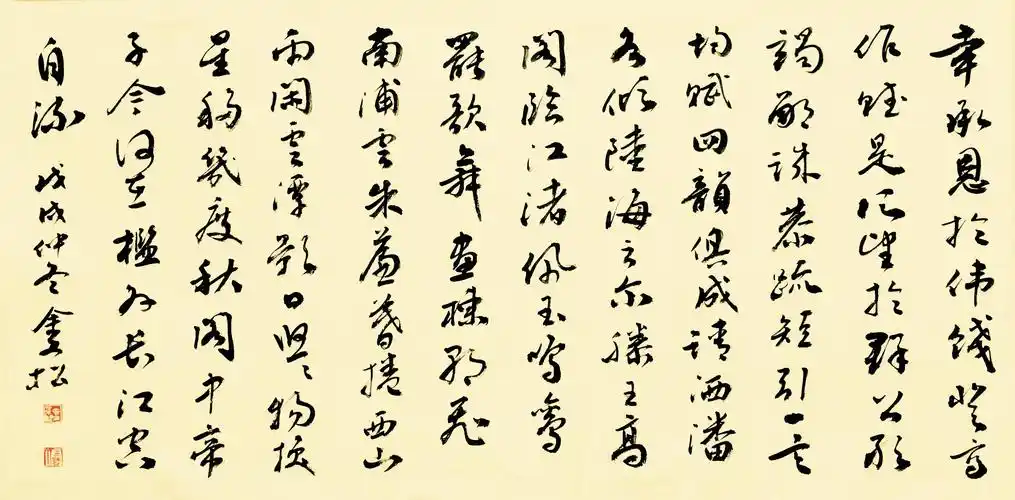 幸承恩於伟餞登高
作賦是所望於群公敢
竭鄙誠恭疏短引一言
均賦四韻俱成請洒潘
各傾陸海云尔滕王高
阁臨江渚佩玉鳴鸞
罷歌舞畫棟朝飛
南浦雲朱簾暮捲西山
雨閑雲潭影日悠悠物换
星移幾度秋阁中帝
子今何在檻外长江空
自流 戊戌仲冬金松